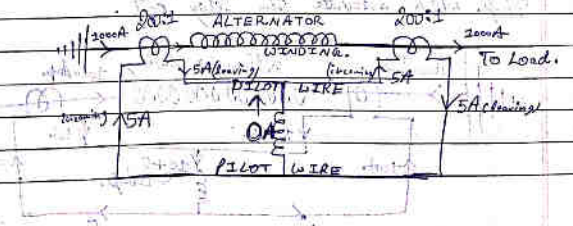 200:1 ALTERNATOR 200:1
1000A WINDING. 1000A
To Load.
5A(leaving) (incoming) 5A
PILOT WIRE
5A (leaving)
(incoming) 5A
0A
PILOT WIRE